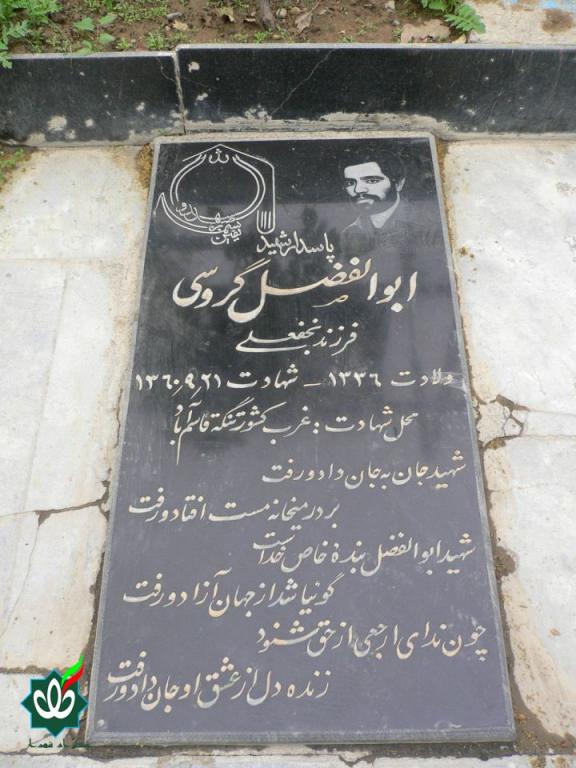 پاسدار شهید
ابوالفضل گروسی
فرزند نجفعلی
ولادت ۱۳۳۶ - شهادت ۱۳۶۰،۹،۲۱
محل شهادت : غرب کشور تنگه قاسم آباد
شهید جان به جان داد و رفت
بر در میخانه مست افتاد و رفت
شهید ابوالفضل بندهٔ خاص خداست
گوئیا شد از جهان آزاد و رفت
چون ندای ارجعی از حق شنود
زنده دل از عشق او جان داد و رفت